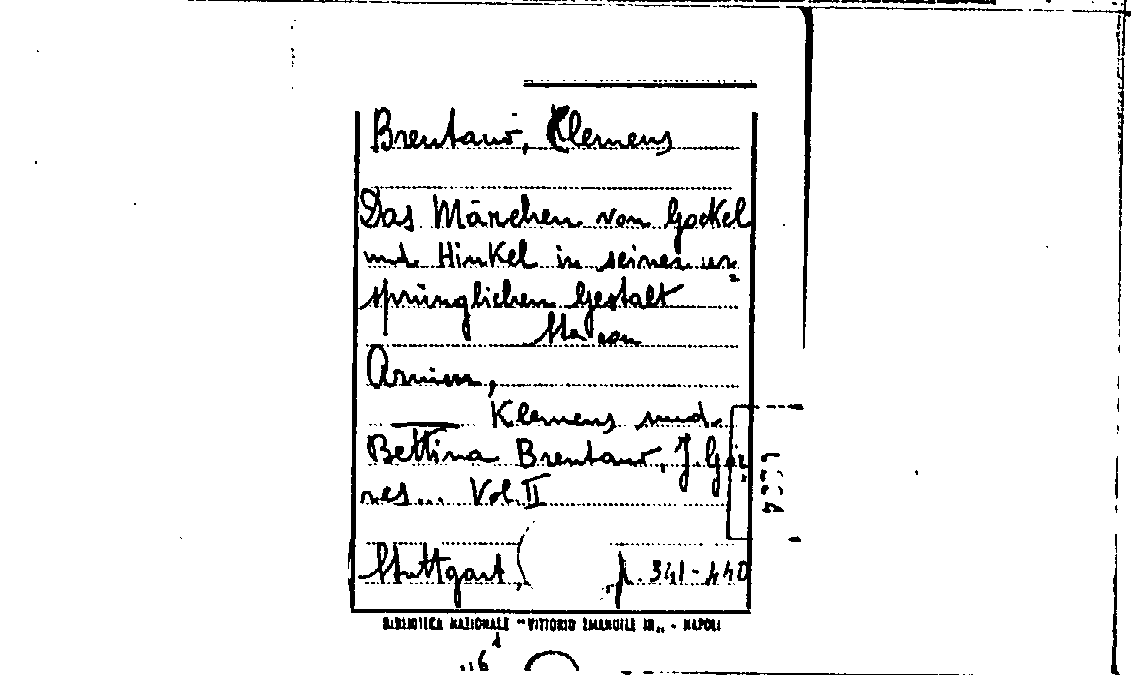 Brentano, Klemens
Das Märchen von Gockel
und Hinkel in seiner ur=
sprünglichen Gestalt
Arnim,
Klemens und
Bettina Brentano, J. Gör=
res... Vol. II
Stuttgart, p. 341-440
BIBLIOTECA NAZIONALE "VITTORIO EMANUELE III„ - NAPOLI